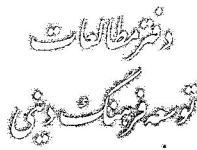 دفتر مطالعات
توسعه فرهنگ دینی